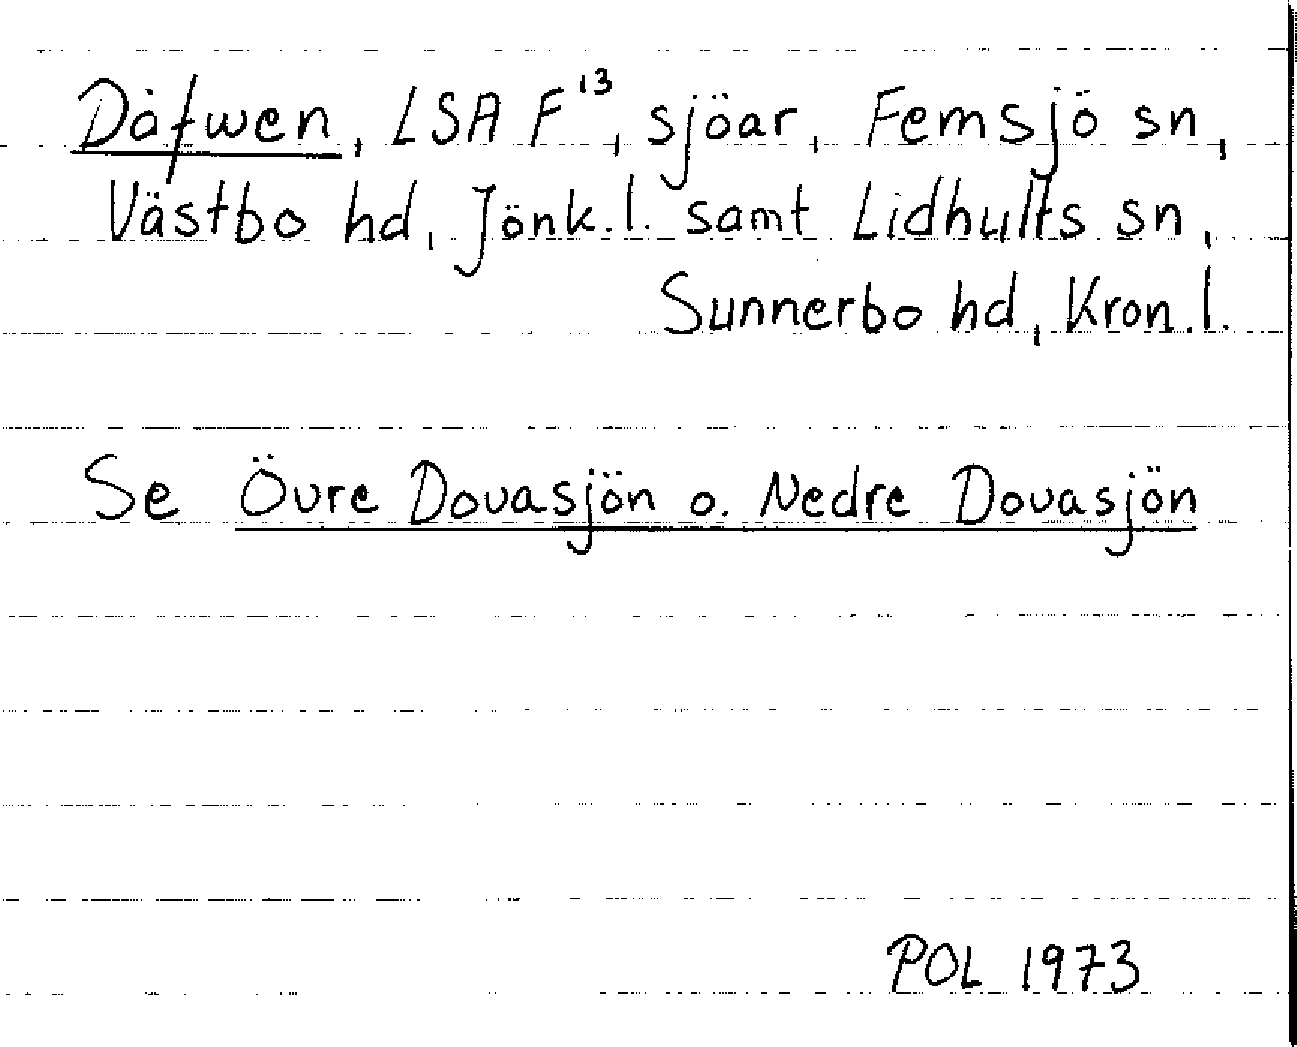 Dåfwen, LSA F¹³, sjöar, Femsjö sn,
Västbo hd, Jönk.l. samt Lidhults sn,
Sunnerbo hd, Kron.l.
Se Övre Dovasjön o. Nedre Dovasjön
POL 1973